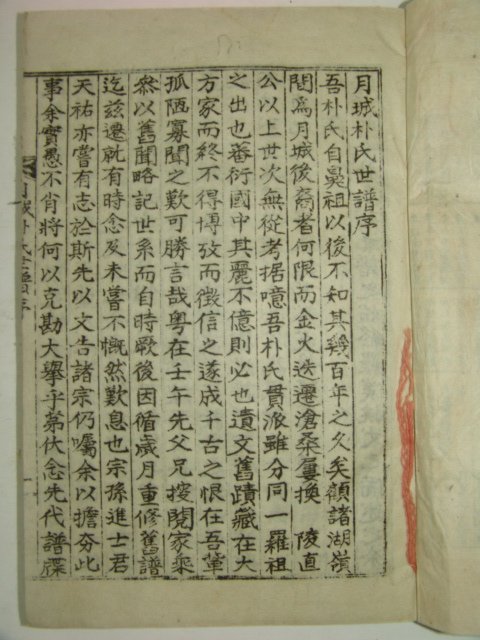 月城朴氏世譜序
吾朴氏自鼻祖以後不知其幾百年之久矣顧諸湖嶺
間爲月城後裔者何限而金火迭遷滄桑屢換 陵直
公以上世次無從考据噫吾朴氏貫派雖分同一羅祖
之出也蕃衍國中其麗不億則必也遺文舊蹟藏在大
方家而終不得博攷而徵信之遂成千古之恨在吾輩
孤陋寡聞之歎可勝言哉粤在壬午先父兄搜閱家乘
叅以舊聞略記世系而自時厥後因循歲月重修舊譜
迄玆遷就有時念及未嘗不慨然歎息也宗孫進士君
天祐亦嘗有志於斯先以文告諸宗仍囑余以擔夯此
事余實愚不肖將何以克勘大擧乎第伏念先代譜牒
月城朴氏世譜序